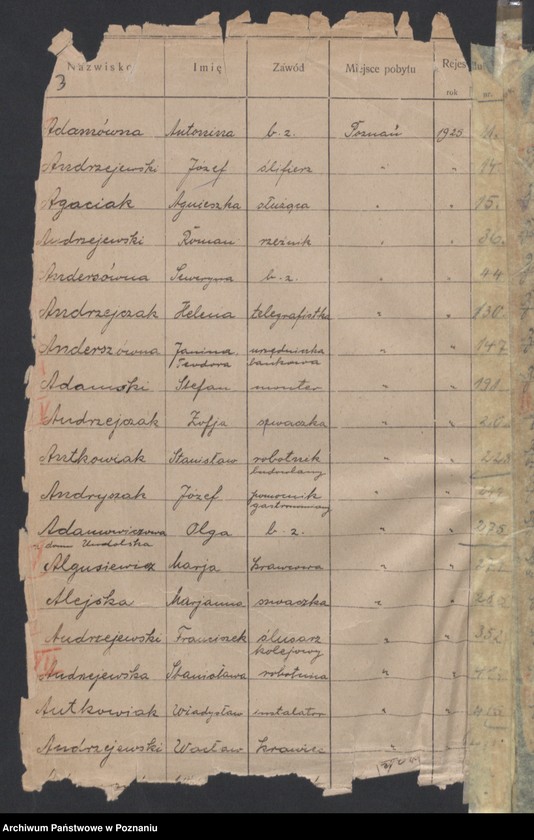 3
Nazwisko Imię Zawód Miejsce pobytu Rejes
rok nr.
Adamówna Antonina b. z. Poznań 1925 11.
Andrzejewski Józef ślifierz " " 14.
Agaciak Agnieszka służąca " " 15.
Andrzejewski Roman rzeźnik " " 36.
Andersówna Seweryna b. z. " " 44
Andrzejczak Helena telegrafistka " " 130
Anderszówna Janina urzędniczka " " 147
Teodora bankowa
Adamski Stefan monter " " 191
Andrzejczak Zofja szwaczka " "
Antkowiak Stanisław robotnik " "
budowlany
Andryszak Józef pomocnik " "
gastronomowy
Adamowiczowa Olga b. z. " " 275
dom
Algusiewicz Marja krawcowa " "
Alejska Marjanna szwaczka " "
Andrzejewski Franciszek ślusarz " " 352
kolejowy
Andrzejewska Stanisława robotnica " "
Antkowiak Władysław instalator " "
Andrzejewski Wacław krawiec " "
Archiwum Państwowe w Poznaniu